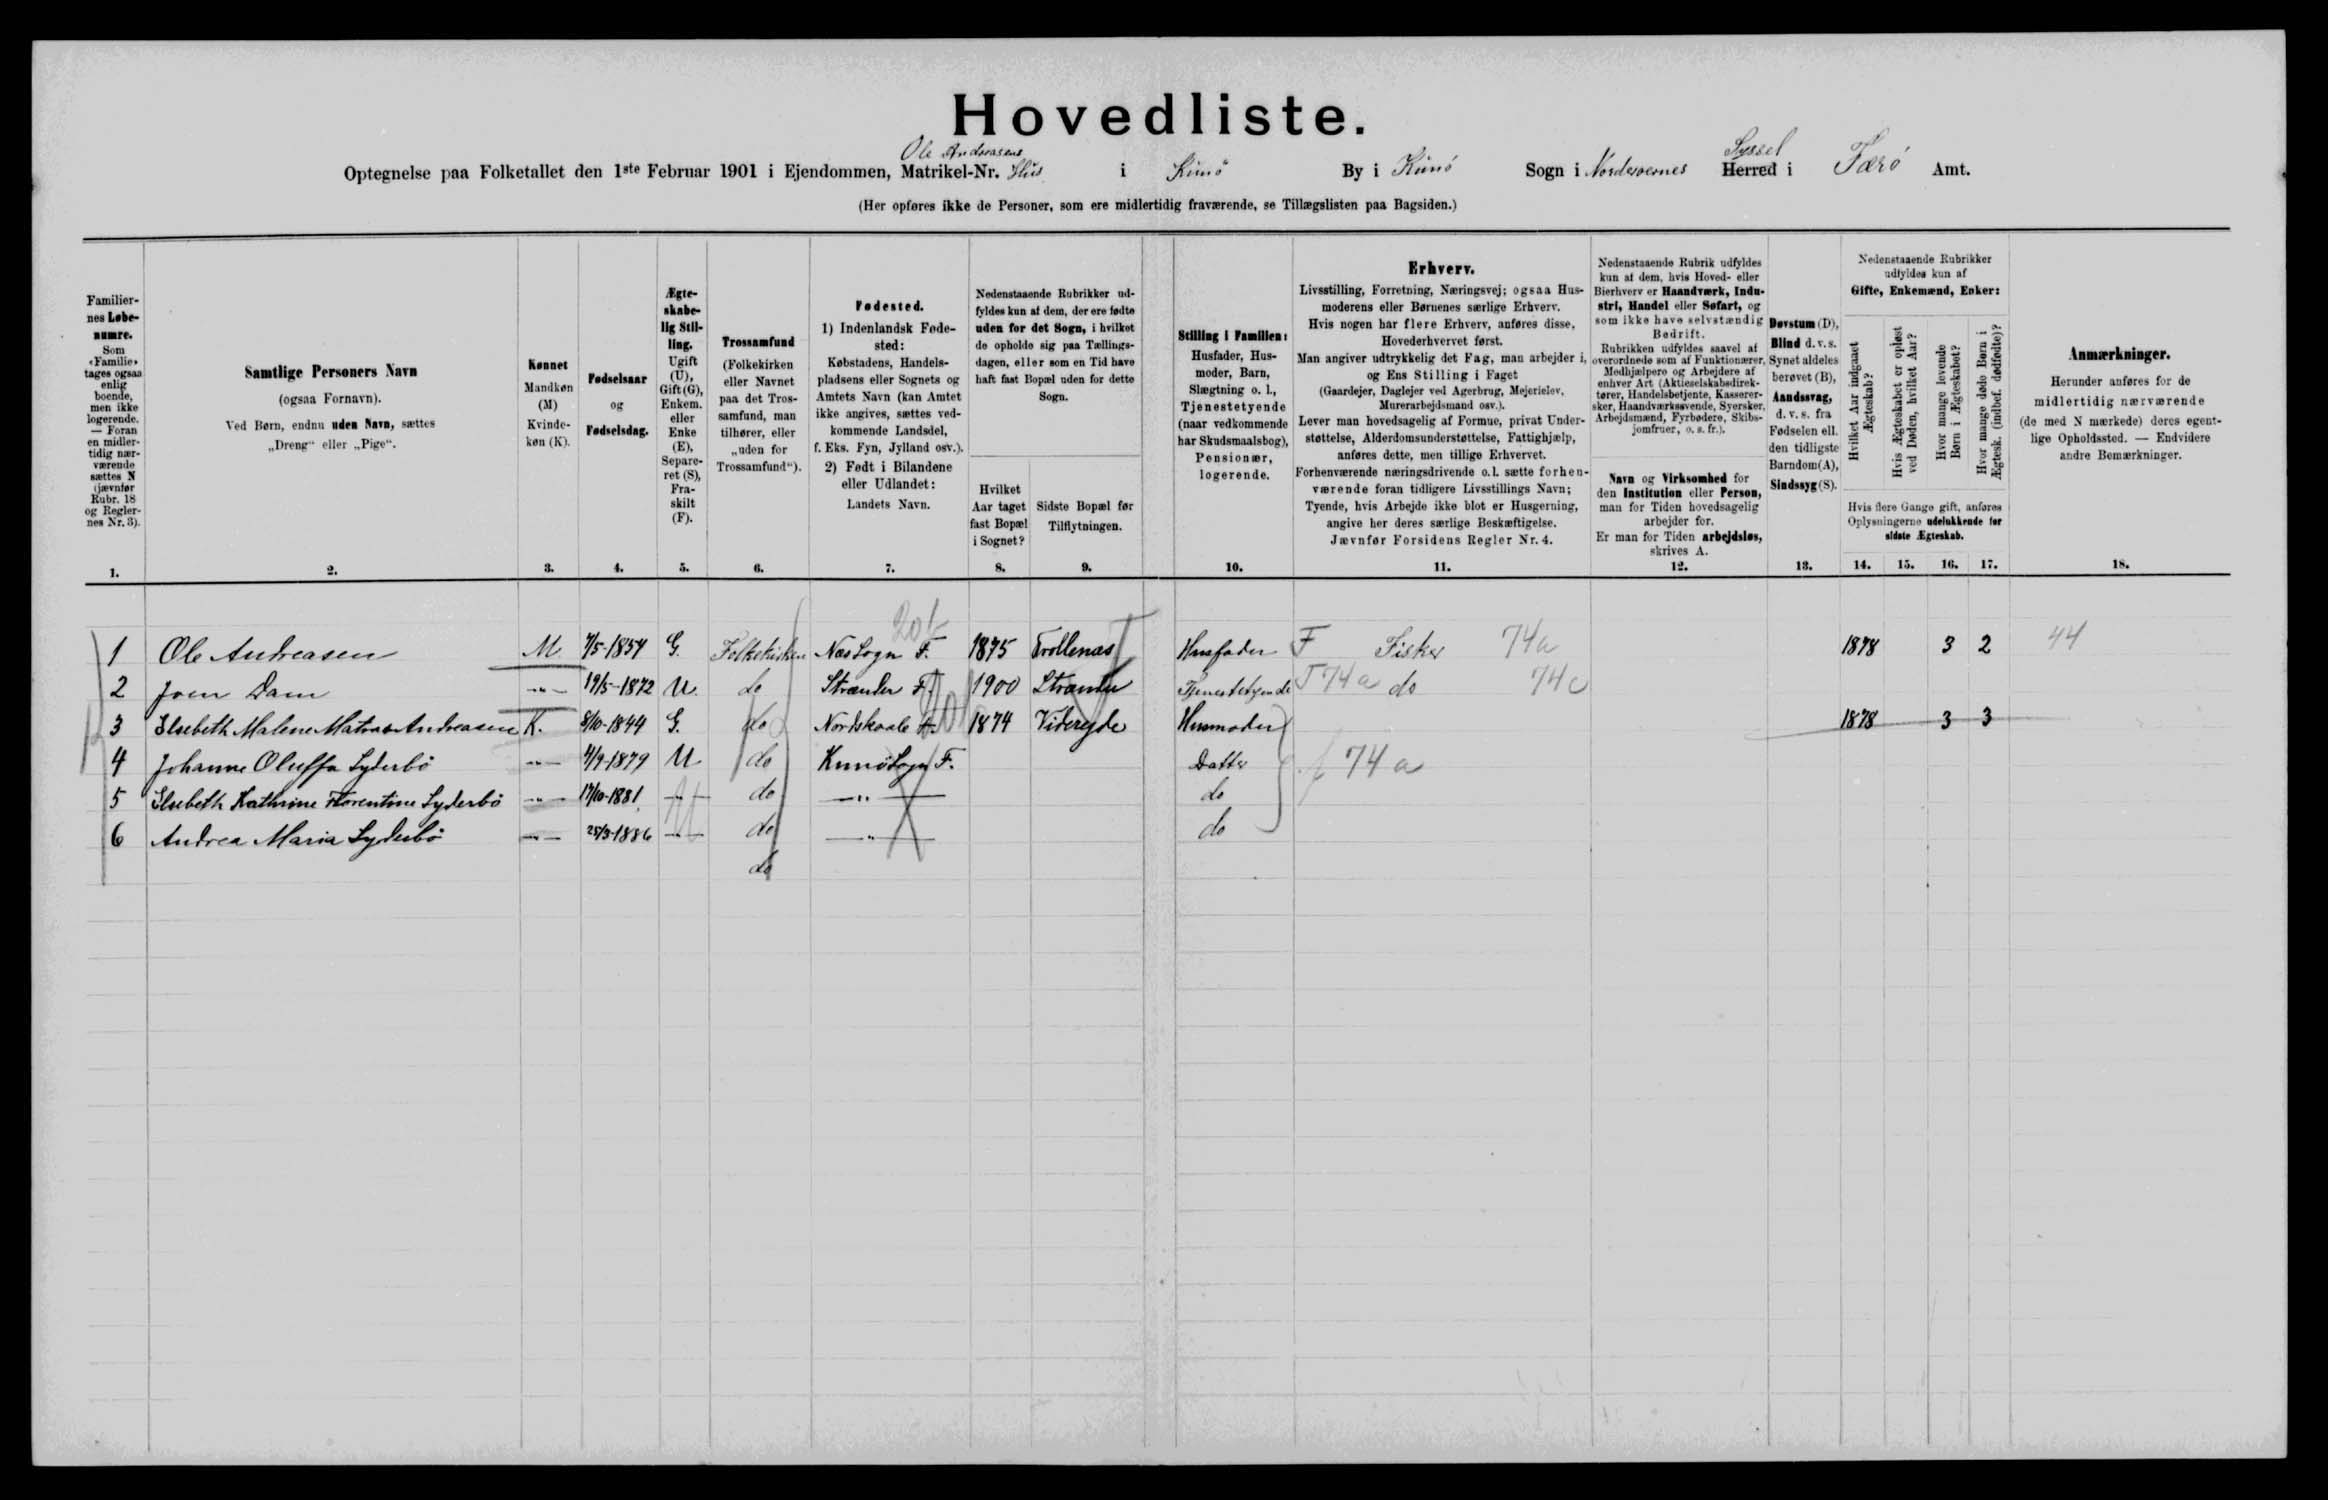 Hovedliste.
Ole Andreasens Syssel
Optegnelse paa Folketallet den 1ste Februar 1901 i Ejendommen, Matrikel-Nr. Hus i Kunö By i Kunö Sogn i Norderoernes Herred i Færö Amt.
(Her opføres ikke de Personer, som ere midlertidig fraværende, se Tillægslisten paa Bagsiden.)
Familiernes Løbenumre.
Som «Familie» tages ogsaa enlig boende, men ikke logerende. — Foran en midlertidig nærværende sættes N (jævnfør Rubr. 18 og Reglernes Nr. 3).
1.
Samtlige Personers Navn
(ogsaa Fornavn).
Ved Børn, endnu uden Navn, sættes
„Dreng“ eller „Pige“.
2.
Kønnet
Mandkøn (M)
Kvindekøn (K).
3.
Fødselsaar
og
Fødselsdag.
4.
Ægteskabelig Stilling.
Ugift (U), Gift (G), Enkem. eller Enke (E), Separeret (S), Fraskilt (F).
5.
Trossamfund
(Folkekirken eller Navnet paa det Trossamfund, man tilhører, eller „uden for Trossamfund“).
6.
Fødested.
1) Indenlandsk Fødested:
Købstadens, Handelspladsens eller Sognets og Amtets Navn (kan Amtet ikke angives, sættes vedkommende Landsdel, f. Eks. Fyn, Jylland osv.).
2) Født i Bilandene eller Udlandet:
Landets Navn.
7.
Nedenstaaende Rubrikker udfyldes kun af dem, der ere fødte uden for det Sogn, i hvilket de opholde sig paa Tællingsdagen, eller som en Tid have haft fast Bopæl uden for dette Sogn.
Hvilket Aar taget fast Bopæl i Sognet?
8.
Sidste Bopæl før Tilflytningen.
9.
Stilling i Familien:
Husfader, Husmoder, Barn, Slægtning o. l., Tjenestetyende (naar vedkommende har Skudsmaalsbog), Pensionær, logerende.
10.
Erhverv.
Livsstilling, Forretning, Næringsvej; ogsaa Husmoderens eller Børnenes særlige Erhverv.
Hvis nogen har flere Erhverv, anføres disse, Hovederhvervet først.
Man angiver udtrykkelig det Fag, man arbejder i, og Ens Stilling i Faget
(Gaardejer, Daglejer ved Agerbrug, Mejerielev, Murerarbejdsmand osv.).
Lever man hovedsagelig af Formue, privat Understøttelse, Alderdomsunderstøttelse, Fattighjælp, anføres dette, men tillige Erhvervet.
Forhenværende næringsdrivende o. l. sætte forhenværende foran tidligere Livsstillings Navn;
Tyende, hvis Arbejde ikke blot er Husgerning, angive her deres særlige Beskæftigelse.
Jævnfør Forsidens Regler Nr. 4.
11.
Nedenstaaende Rubrik udfyldes kun af dem, hvis Hoved- eller Bierhverv er Haandværk, Industri, Handel eller Søfart, og som ikke have selvstændig Bedrift.
Rubrikken udfyldes saavel af overordnede som af Funktionærer, Medhjælpere og Arbejdere af enhver Art (Aktieselskabsdirektører, Handelsbetjente, Kasserersker, Haandværkssvende, Syersker, Arbejdsmænd, Fyrbødere, Skibsjomfruer, o. s. fr.).
Navn og Virksomhed for den Institution eller Person, man for Tiden hovedsagelig arbejder for.
Er man for Tiden arbejdsløs, skrives A.
12.
Døvstum (D), Blind d. v. s. Synet aldeles berøvet (B), Aandssvag, d. v. s. fra Fødselen ell. den tidligste Barndom (A), Sindssyg (S).
13.
Nedenstaaende Rubrikker udfyldes kun af
Gifte, Enkemænd, Enker:
Hvilket Aar indgaaet Ægteskab?
Hvis Ægteskabet er opløst ved Døden, hvilket Aar?
Hvor mange levende Børn i Ægteskabet?
Hvor mange døde Børn i Ægtesk. (indbef. dødfødte)?
Hvis flere Gange gift, anføres Oplysningerne udelukkende for sidste Ægteskab.
14. 15. 16. 17.
Anmærkninger.
Herunder anføres for de midlertidig nærværende (de med N mærkede) deres egentlige Opholdssted. — Endvidere andre Bemærkninger.
18.
1 Ole Andreasen M 7/5-1854 G. Folkekirken Næs Sogn F. 1875 Trollenæs Husfader F Fisker 74a 1878 3 2 44
2 Joen Dam -"- 19/5-1872 U. do Strænder F. 1900 Strænder Tjenestetyende T 74a do 74c
3 Elsebeth Malene Matras Andreasen K. 8/10-1844 G. do Nordskaale F. 1874 Videreyde Husmoder 1878 3 3
4 Johanne Oluffa Syderbö -"- 4/9-1879 U do Kunö Sogn F. Datter f 74a
5 Elsebeth Kathrine Florentine Syderbö -"- 17/10-1881 -"- do -"- do
6 Andrea Maria Syderbö -"- 25/3-1886 -"- do -"- do
do